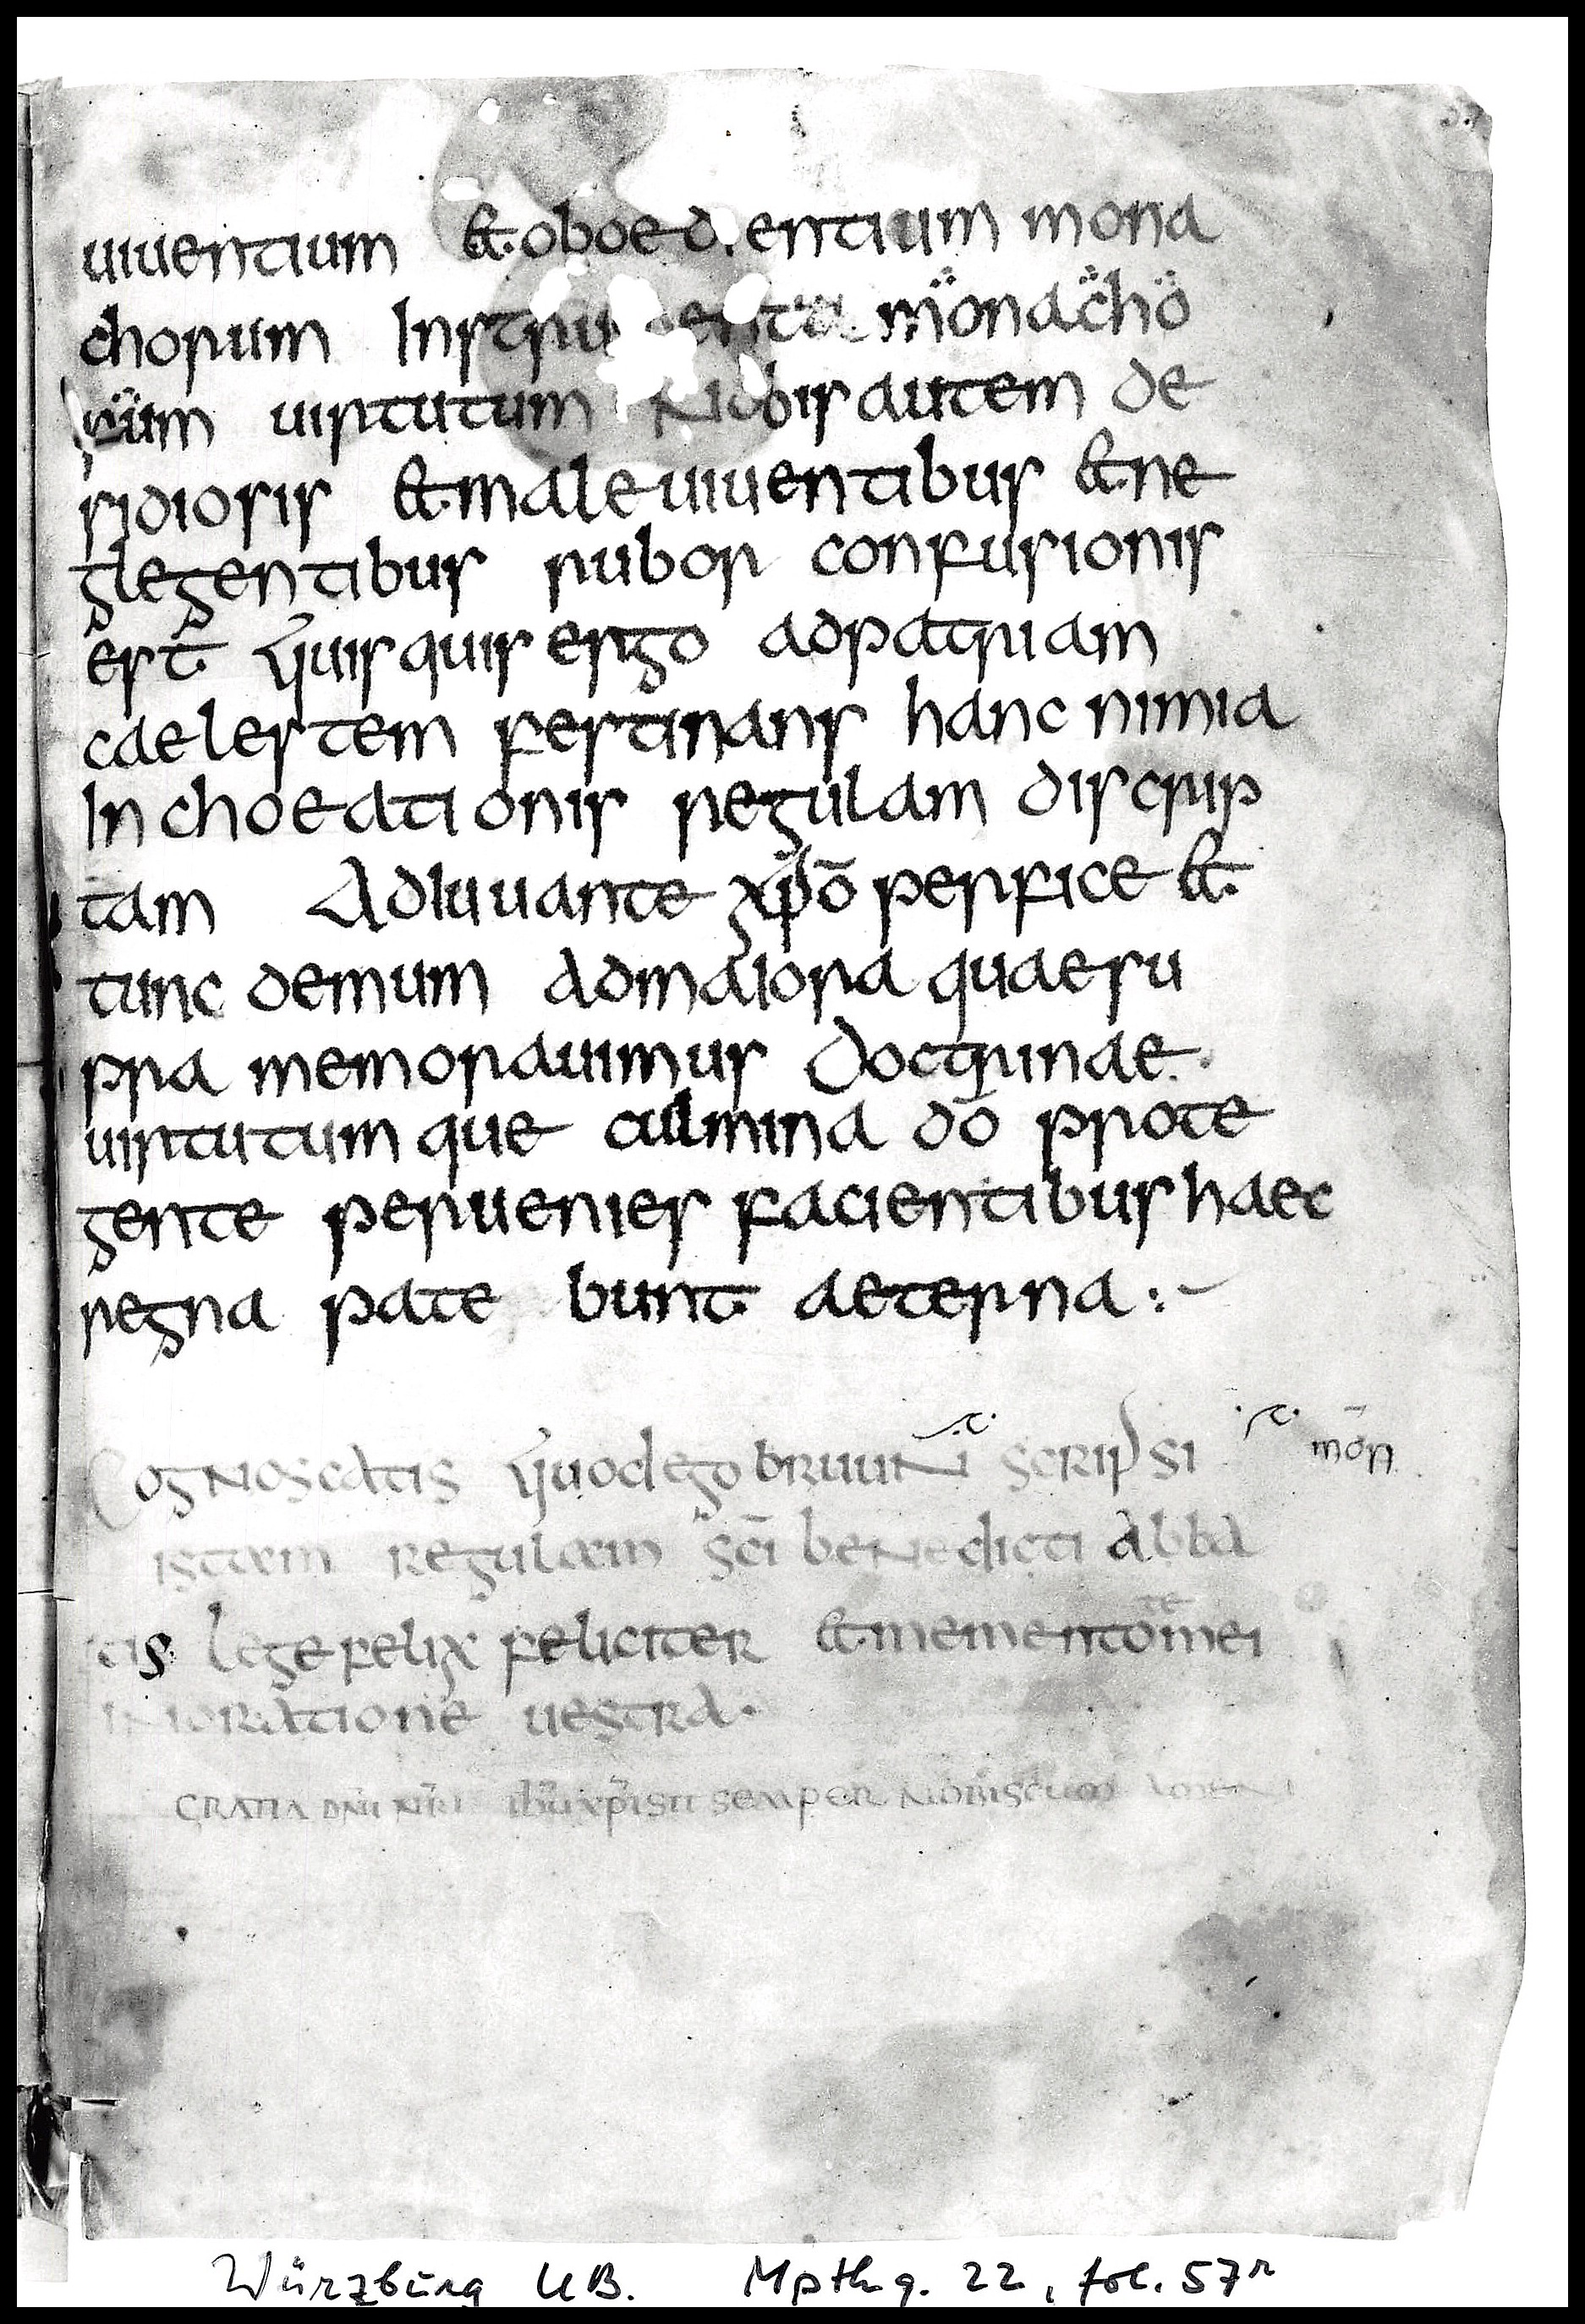 uiuentium & oboed.entium mona
chorum Instru enta monacho
rum uirtutum Nobis autem de
sidiosis & male uiuentibus & ne
glegentibus rubor confusionis
est Quisquis ergo ad patriam
caelestem festinans hanc nimia
Inchoeationis regulam discrip
tam Adiuuante xp̄ō perfice &
tunc demum ad maiora quae su
pra memorauimus Doctrinae.
uirtutumque culmina dō prote
gente peruenies facientibus haec
regna pate bunt aeterna:~
Cognoscatis Quod ego bruuN scripsi mōn
istam regulam sc̄i beNedicti abba
tis lege felix feliciter & mementote mei
IN oratione uestra.
GRATIA DN̄I NR̄I ih̄u xp̄i sit semper NobiscUm AmeN
Würzburg UB. Mpthq. 22, fol. 57r